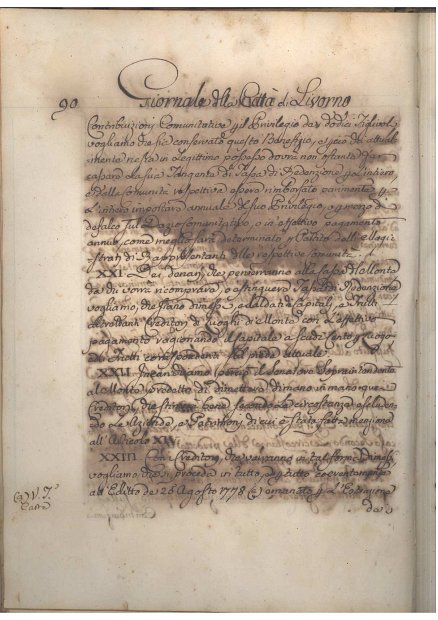 90 Giornale della Città di Livorno
Contribuzioni Comunitative p il Privilegio da XII dodici Figliuoli
vogliamo che sia conservato questo Benefizio, e però chi attual-
mente ne sta in legittimo possesso dovrà non ostante
pagare la sua Tangente di Tassa di Redenzione p l'intiero
e dalla Comunità respettiva essere rimborsato parimente p
l'intiero importare annuale del suo Privilegio, o p mezzo di
defalco sul Dazio comunitativo, o in effettivo pagamento
annuo, come meglio sarà determinato, e Pattato dalli Magi-
strati di Rappresentanti delle respettive Comunità.
XXI. Dei denari, che perverranno alla Cassa del Monte
da chi vorrà ricomprare, o estinguere Tassa di Redenzione
vogliamo, che siano dimessi, e saldati i Capitali, e Frutti
altrettanti Creditori di Luoghi di Monte con l'effettivo
pagamento ragionando il Capitale a scudi Cento p Luogo
di Frutti corrispondenti sul piede attuale.
XXII. Incarichiamo perciò il Senatore Soprintendente
al Monte predetto di dimettere di mano in mano quei
Creditori, che stimerà bene secondo le circostanze, escluden-
do le Aziende, e Patrimoni di cui è stata fatta menzione
all' Articolo XIV.
XXIII. Con i Creditori, che verranno in tal forma Dimessi
vogliamo, che si proceda in tutto, e p tutto coerentemente
all' Editto de 26 Agosto 1778 emanato p l'Estrazione
da